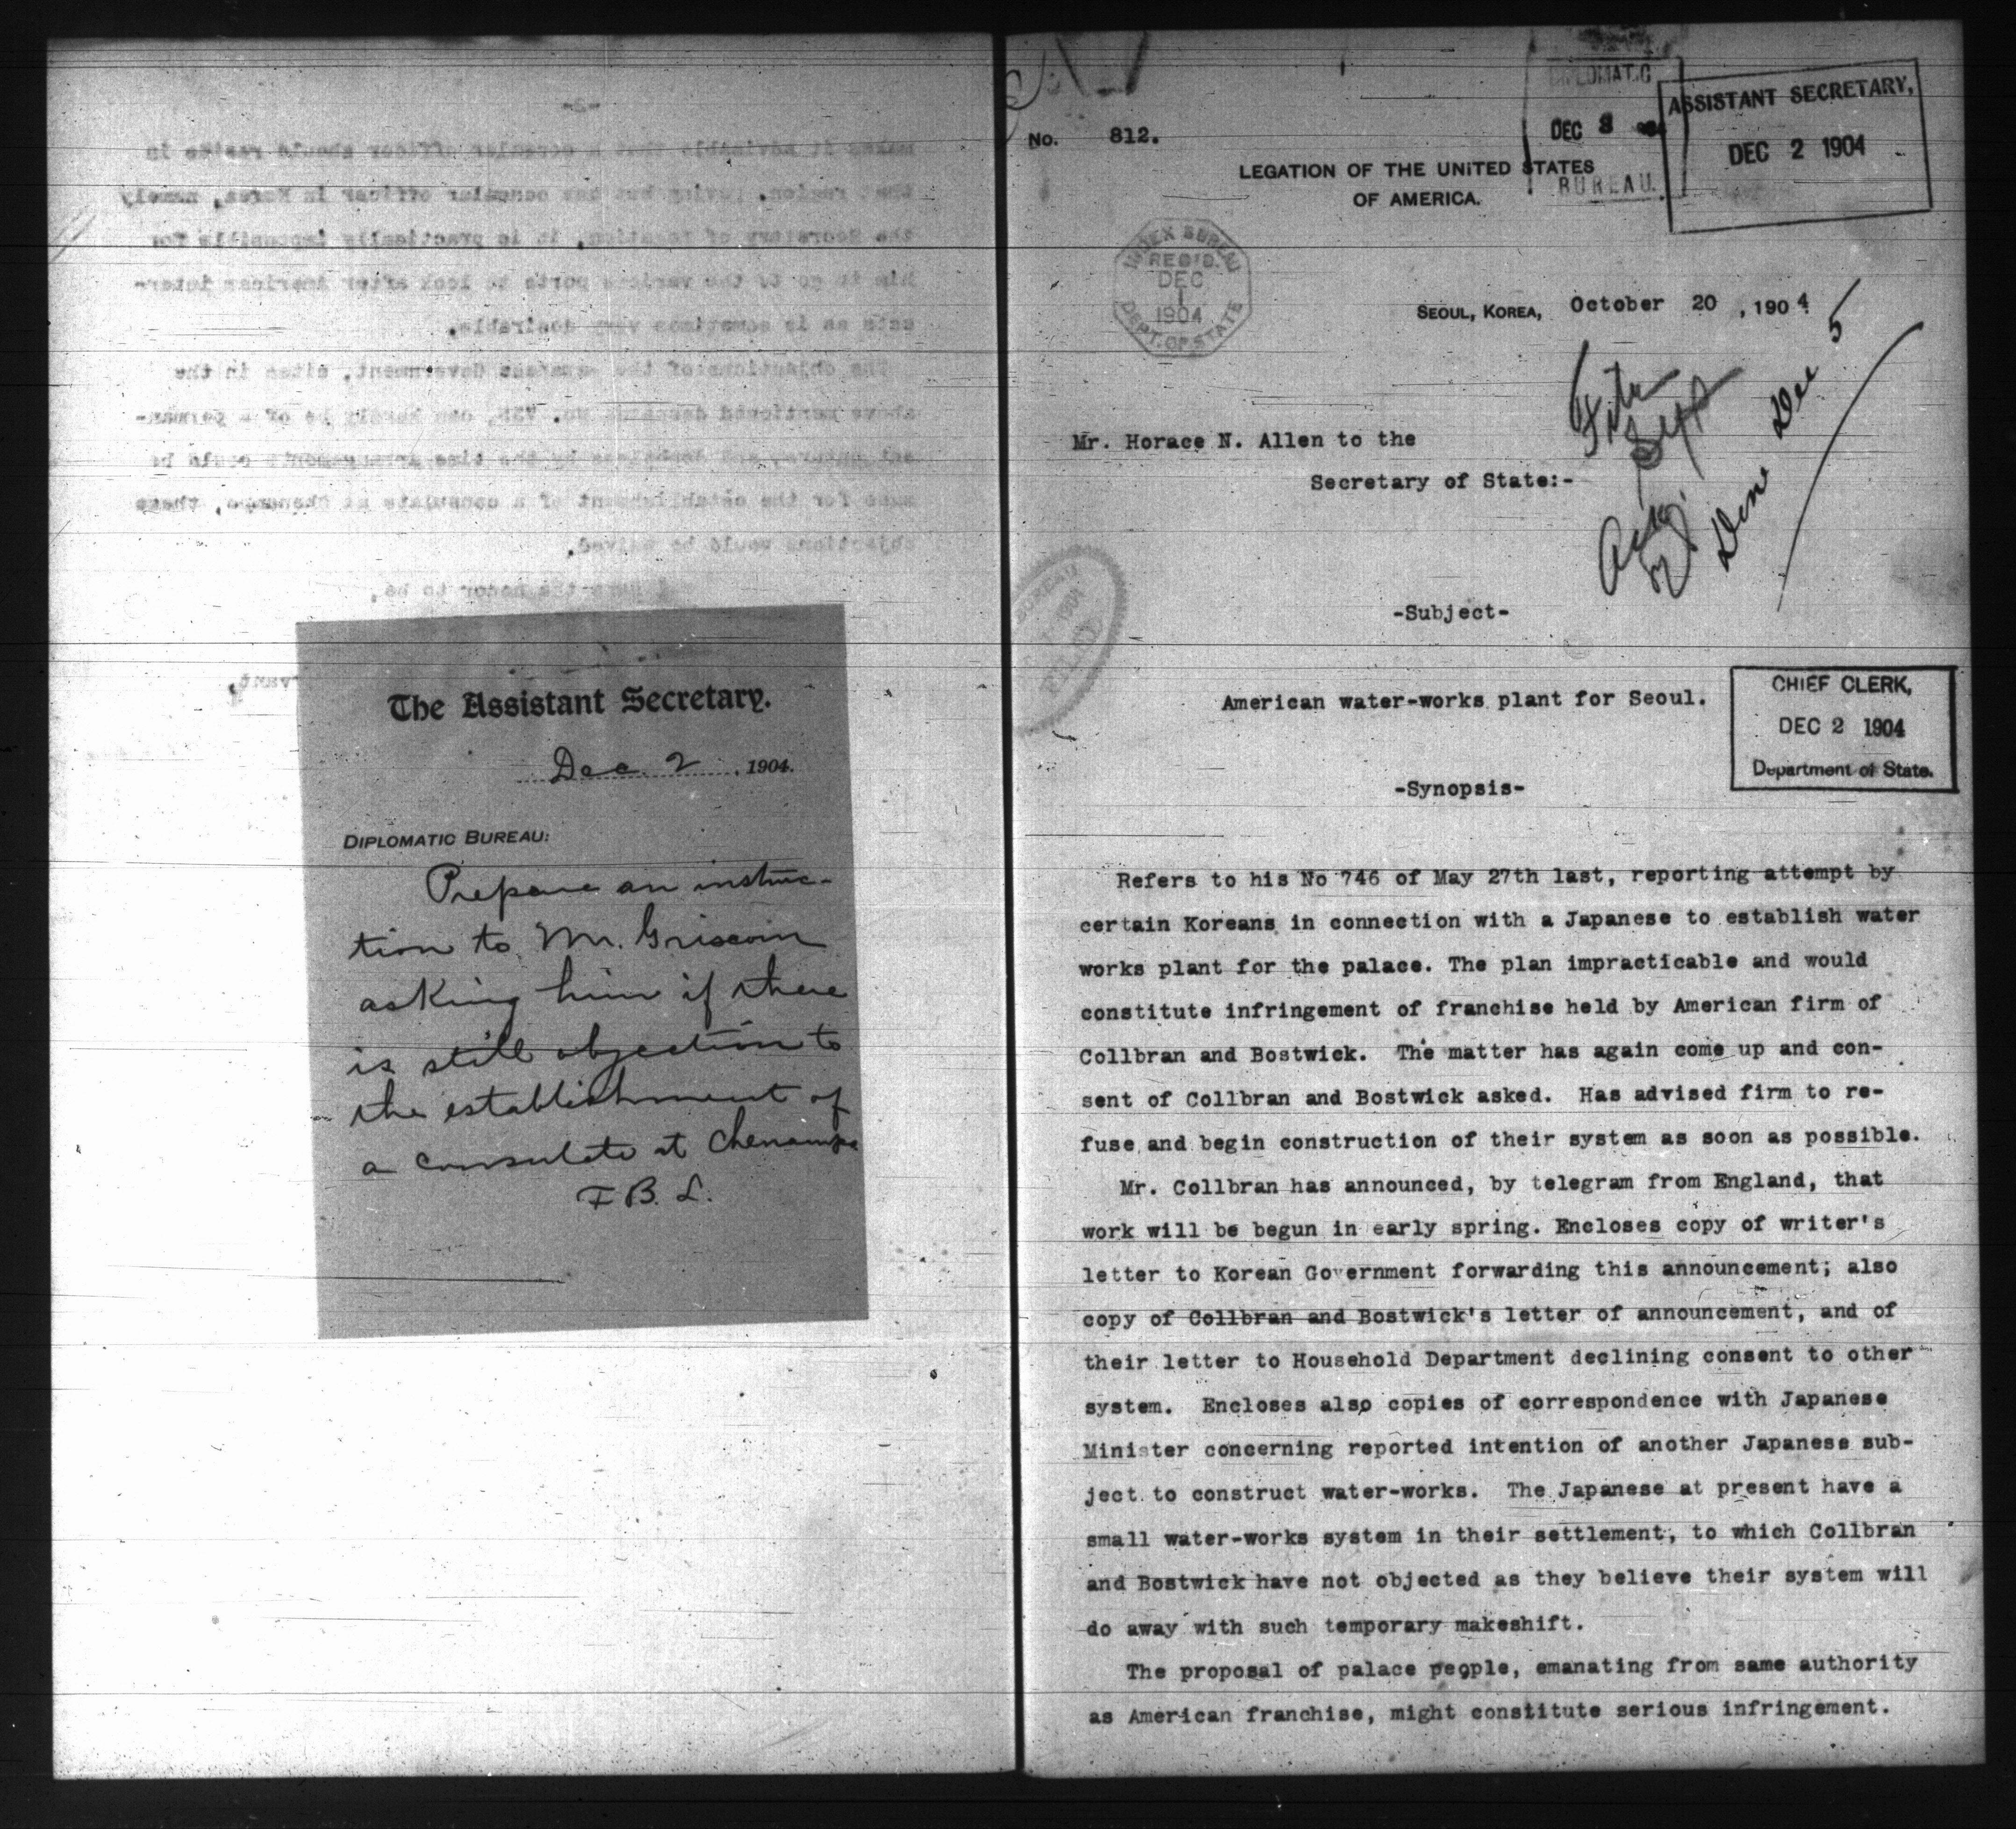 The Assistant Secretary.
Dec. 2, 1904.
DIPLOMATIC BUREAU:
Prepare an instruc-
tion to Mr. Griscom
asking him if there
is still objection to
the establishment of
a consulate at Chenampo
F B. L.
No. 812.
LEGATION OF THE UNITED STATES
OF AMERICA.
DIPLOMATIC
DEC 3
BUREAU.
ASSISTANT SECRETARY,
DEC 2 1904
INDEX BUREAU
REC'D.
DEC
1
1904
DEPT. OF STATE
SEOUL, KOREA, October 20, 1904.
Ack.
Done Dec 5
Mr. Horace N. Allen to the
Secretary of State:-
BUREAU
1904
-Subject-
American water-works plant for Seoul.
CHIEF CLERK,
DEC 2 1904
Department of State.
-Synopsis-
Refers to his No 746 of May 27th last, reporting attempt by
certain Koreans in connection with a Japanese to establish water
works plant for the palace. The plan impracticable and would
constitute infringement of franchise held by American firm of
Collbran and Bostwick. The matter has again come up and con-
sent of Collbran and Bostwick asked. Has advised firm to re-
fuse and begin construction of their system as soon as possible.
Mr. Collbran has announced, by telegram from England, that
work will be begun in early spring. Encloses copy of writer's
letter to Korean Government forwarding this announcement; also
copy of Collbran and Bostwick's letter of announcement, and of
their letter to Household Department declining consent to other
system. Encloses also copies of correspondence with Japanese
Minister concerning reported intention of another Japanese sub-
ject to construct water-works. The Japanese at present have a
small water-works system in their settlement, to which Collbran
and Bostwick have not objected as they believe their system will
do away with such temporary makeshift.
The proposal of palace people, emanating from same authority
as American franchise, might constitute serious infringement.